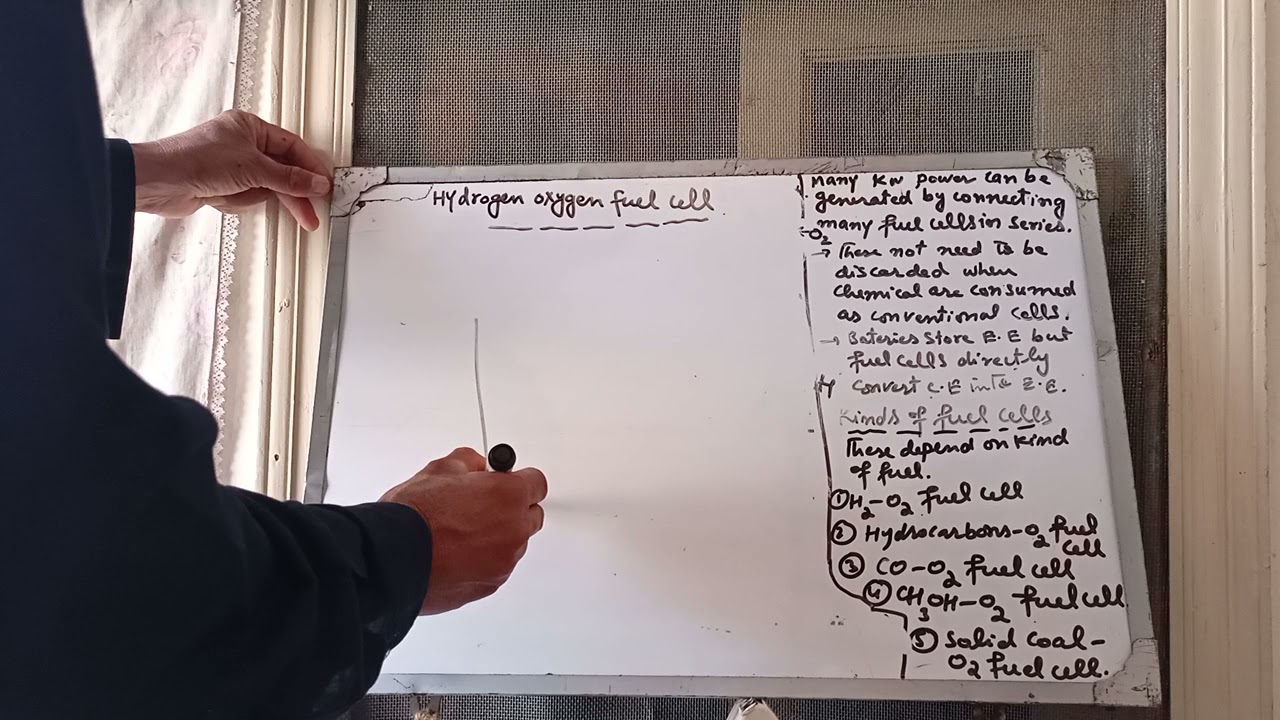 Hydrogen oxygen fuel cell
Many KW power can be
generated by connecting
many fuel cells in series.
-O2
→ These not need to be
discarded when
chemical are consumed
as conventional cells.
→ Bateries store E.E but
fuel cells directly
convert C.E into E.E.
Kinds of fuel cells
These depend on kind
of fuel.
① H2-O2 fuel cell
② Hydrocarbons-O2 fuel
cell
③ CO-O2 fuel cell
④ CH3OH-O2 fuel cell
⑤ Solid coal-
O2 fuel cell.